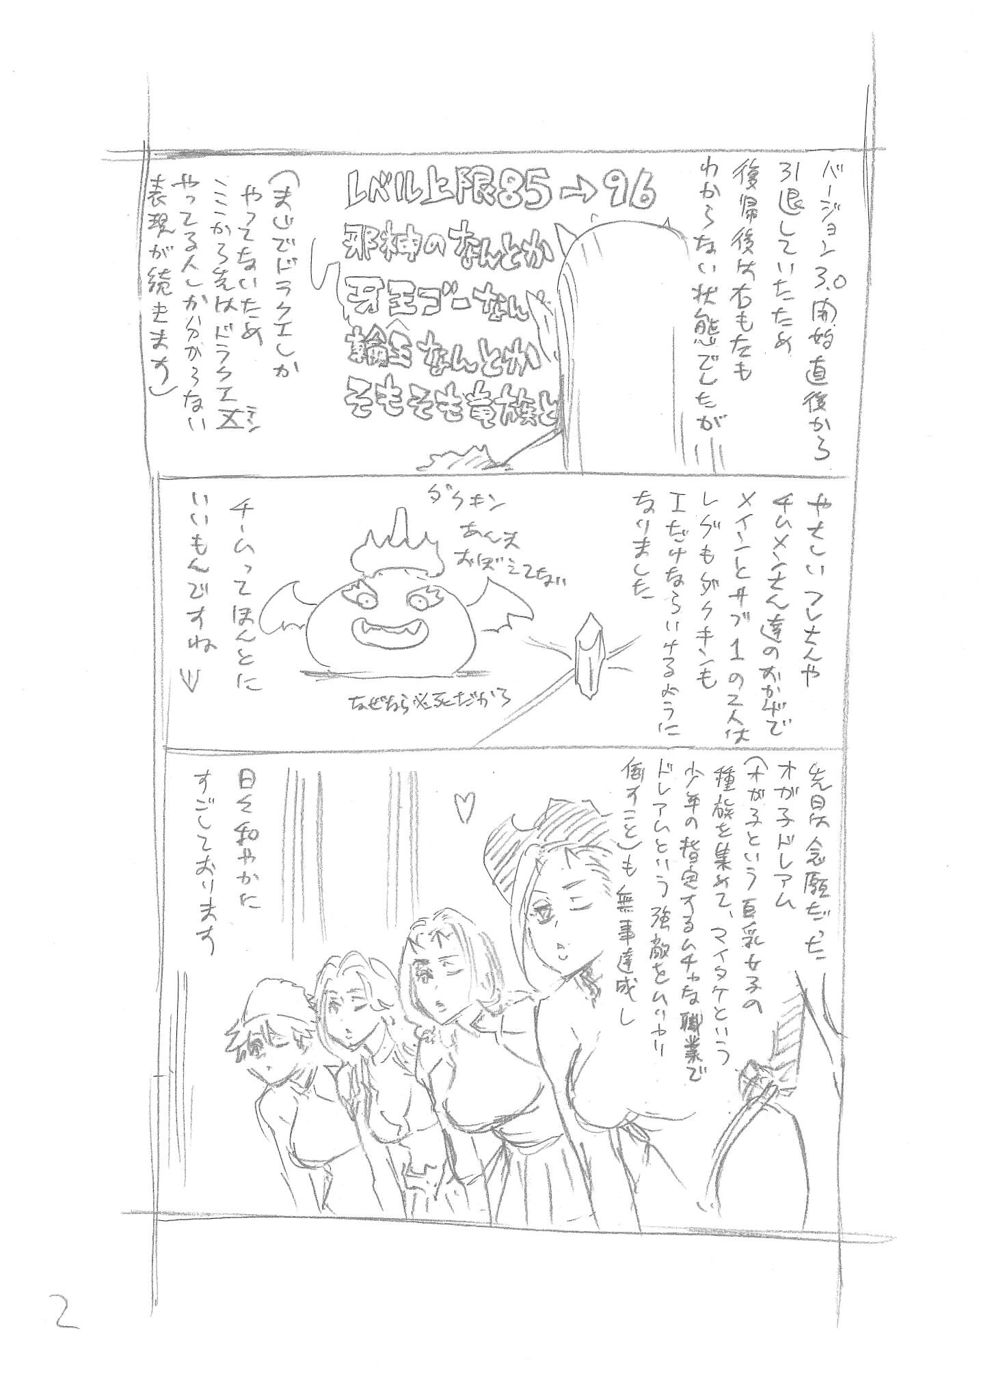 バージョン3.0開始直後から
引退していたため
復帰後は右も左も
わからない状態でしたが
レベル上限85→96
邪神のなんとか
牙王ゴーなん
輪王なんとか
そもそも竜族と
(まじでドラクエしか
やってないため
ここから先はドラクエX
テン
やってる人しか分からない
表現が続きます)
やさしいフレさんや
チムメンさん達のおかげで
メインとサブ1の2人は
レグもダクキンも
Iだけならいけるように
なりました
ダクキン
あんま
おぼえてない
なぜなら必死だから
チームってほんとに
いいもんですね
先日は念願だった
オガ子ドレアム
(オガ子という巨乳女子の
種族を集めて、マイタケという
少年の指定するムチャな職業で
ドレアムという強敵をムリヤリ
倒すこと)も無事達成し
日々和やかに
すごしております
2